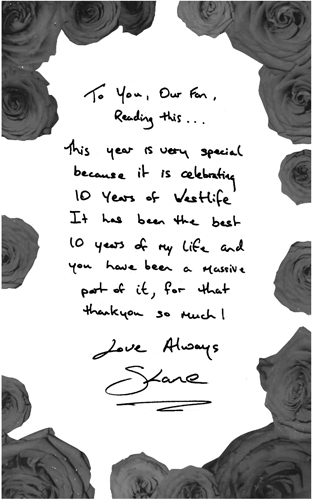 To You, Our Fan,
Reading this...
This year is very special
because it is celebrating
10 Years of Westlife
It has been the best
10 years of my life and
you have been a massive
part of it, for that
thankyou so much!
Love Always
Shane